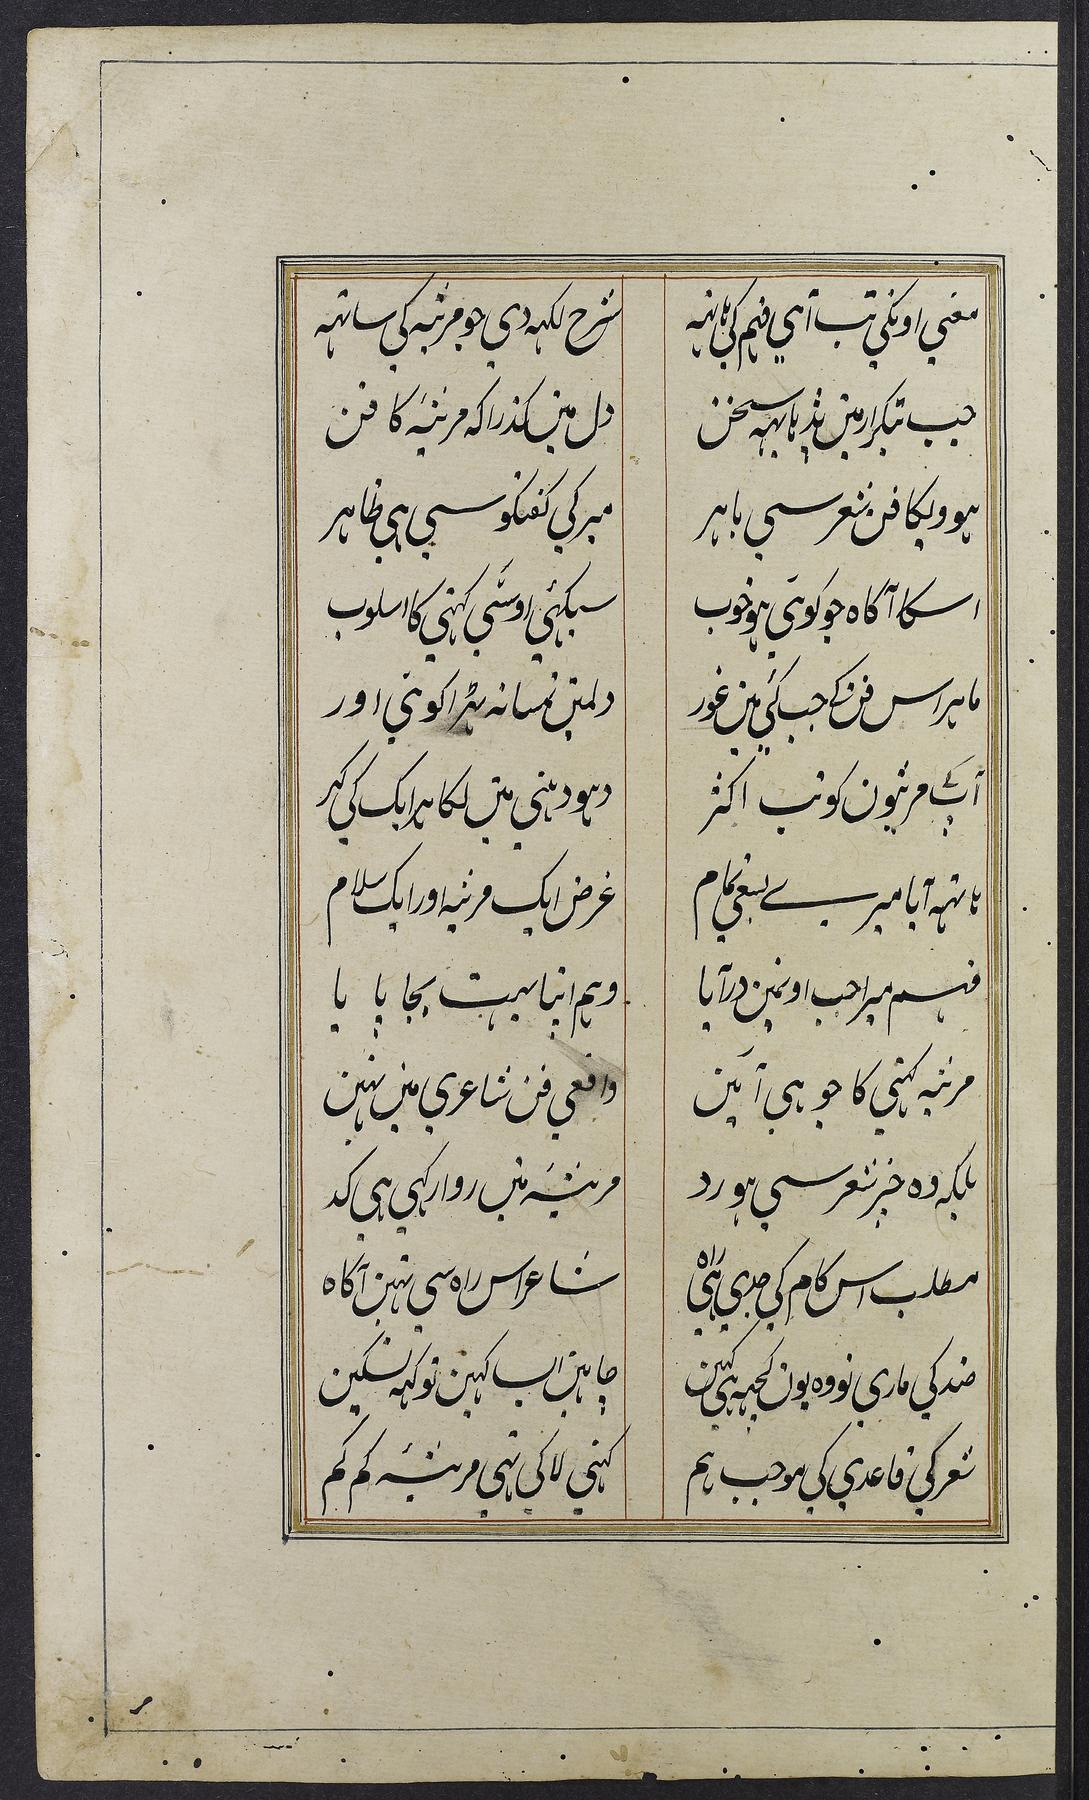 معني اونکي تب آهي فهم کي هاتهه شرح لکهه دي جو مرثيه کي ساتهه
جب تکرار مين پڑيا يهه سخن دل مين گذرا که مرثيۂ کا فن
هوويکا فن شعر سي باهر مير کي گفتگو سي هي ظاهر
اسکا آگاه جو کوئي هو خوب سيکهئي اوسي کهني کا اسلوب
ماهر اس فن کے جب کئي مين غور دلمين تمسا نه ٹهرا کوئي اور
آپ کے مرثيون کو تب اکثر دهوندهني مين لگا هر ايک کي گهر
هاتهه آيا ميرے سعي تمام غرض ايک مرثيه اور ايک سلام
فهم ميرا جب اونمين در آيا وهم اپنا بهت بجا پايا
مرثيه کهني کا جو هي آئين واقعي فن شاعري مين نهين
بلکه وه چيز شعر سي هو رد مرثيۂ مين روا رکهي هي کد
مطلب اس کام کي جدي هي راه شاعر اس راه سي نهين آگاه
ضد کي ماري تو وه يون کچهه هي کهين چاهين ايسا کهين تو کهه نسکين
شعر کي قاعدي کي موجب هم کهني لاگي تهي مرثيۂ کم کم